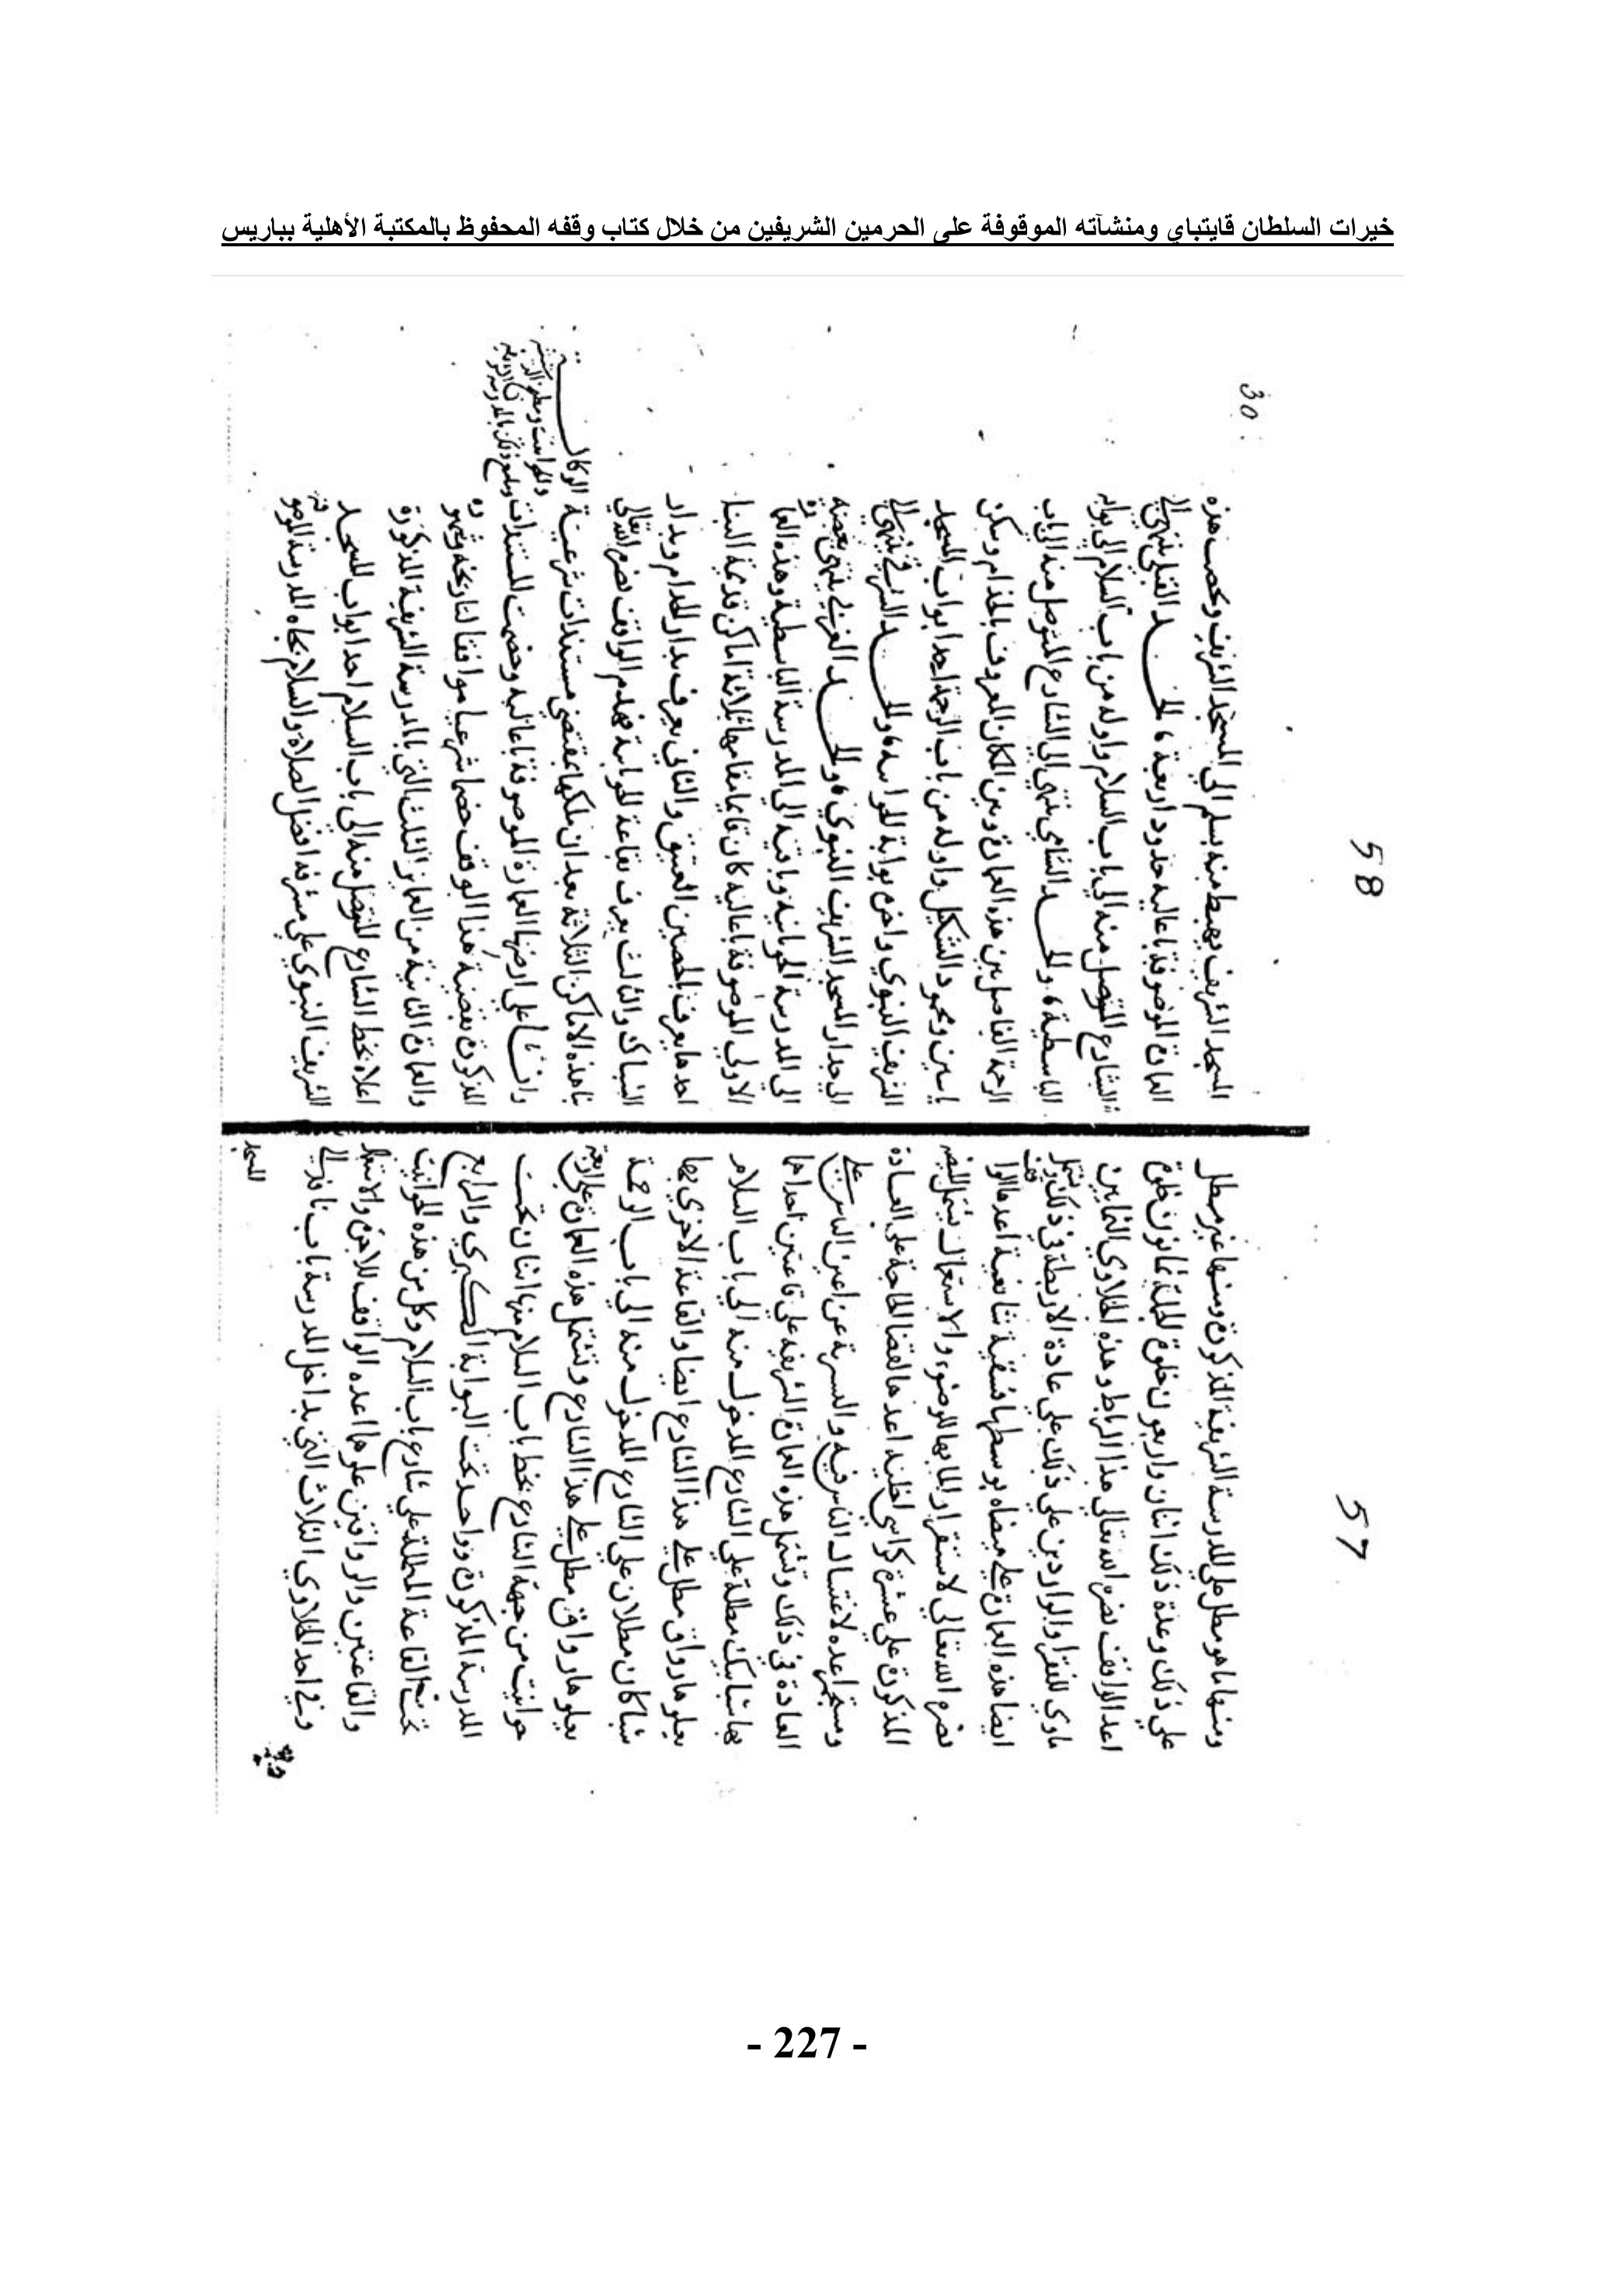 خيرات السلطان قايتباي ومنشآته الموقوفة على الحرمين الشريفين من خلال كتاب وقفه المحفوظ بالمكتبة الأهلية بباريس
57
ومنها ما هو مطل علي المدرسة الشريفة المذكورة ومنها غير مطل
علي ذلك وعدة ذلك اثنان واربعون خلوة الجملة ثمانون خلوة
اعد الواقف نصره الله تعالي هذا الرباط وهذه الخلاوي الثمانين
ماوي للفقرا والواردين علي ذلك علي عادة الاربطة في ذلك
ايضا هذه العمارة علي ميضاه بوسطها فسقية اعدها الواقف
نصره الله تعالي لاستقرار الما بها للوضوء والاستعمال
المذكورة علي عشرة كراسي اخلية اعدها لقضا الحاجة علي العادة
ومستحم اعده لاغتسال الناس فيه والسترة عن اعين الناس علي
العادة في ذلك وتشتمل هذه العمارة الشريفه علي قاعتين احداهما
بها شبابيك مطلة علي الشارع المدخول منه الي باب السلام
يعلوها رواق مطل علي هذا الشارع ايضا والقاعة الاخري بها
شباكان مطلان علي الشارع المدخول منه الي باب الرحمة
يعلوها رواق مطل علي هذا الشارع وتشتمل هذه العمارة علي اربعة
حوانيت من جهة الشارع بخط باب السلام منها اثنان تحت
المدرسة المذكورة وواحد تحت البوابة الكبري والرابع
تحت القاعة المطلة علي شارع باب السلام وكل من هذه الحوانيت
والقاعتين والرواقين علوها اعده الواقف للاجرة والاستغلال
وفي احد الخلاوي الثلاث التي بداخل المدرسة باب نافذ الي
المسجد
58
30
المسجد الشريف يهبط منه بسلم الي المسجد الشريف وتحصر هذه
العمارة الموصوفة باعاليه حدود اربعة الحد القبلي ينتهي الي
الشارع المتوصل منه الي باب السلام واوله من باب السلام الي بوابة
الباسطية والحد الشامي ينتهي الي الشارع المتوصل منه الي باب
الرحمة الفاصل بين هذه العمارة وبين المكان المعروف بالخدام وسكن
ياسين ومحمود الشكيلي واوله من باب الرحمة احد ابواب المسجد
الشريف النبوي واخره بوابة والحد الشرقي ينتهي الي
الي جدار المسجد الشريف النبوي والحد الغربي ينتهي بعضه
الي المدرسة الجوبانية وباقيه الي المدرسة الباسطية وهذه العمارة
الاولي الموصوفة باعاليه كان قايما مقامها ثلاثة اماكن قديمة البنا
احدها يعرف بالحصن العتيق والثاني يعرف بدار الخدام وبدار
الشباك والثالث يعرف بقاعة فهدم الواقف نصره الله تعالي
بنا هذه الاماكن الثلاثة بعد ان ملكها بمقتضي مستندات شرعية
وانشا علي ارضها العمارة الموصوفة باعاليه وخصمت المستندات
المذكورة بقضية هذا الوقف خصما شرعيا موافقا لتاريخه وشهوده
والعمارة الثانية من العماير الثلث التي بالمدرسة الشريفة المذكورة
اعلاه بخط الشارع المتوصل منه الي باب السلام احد ابواب المسجد
الشريف النبوي علي مشرفه افضل الصلاة والسلام تجاه المدرسة الموصوفة
- 227 -